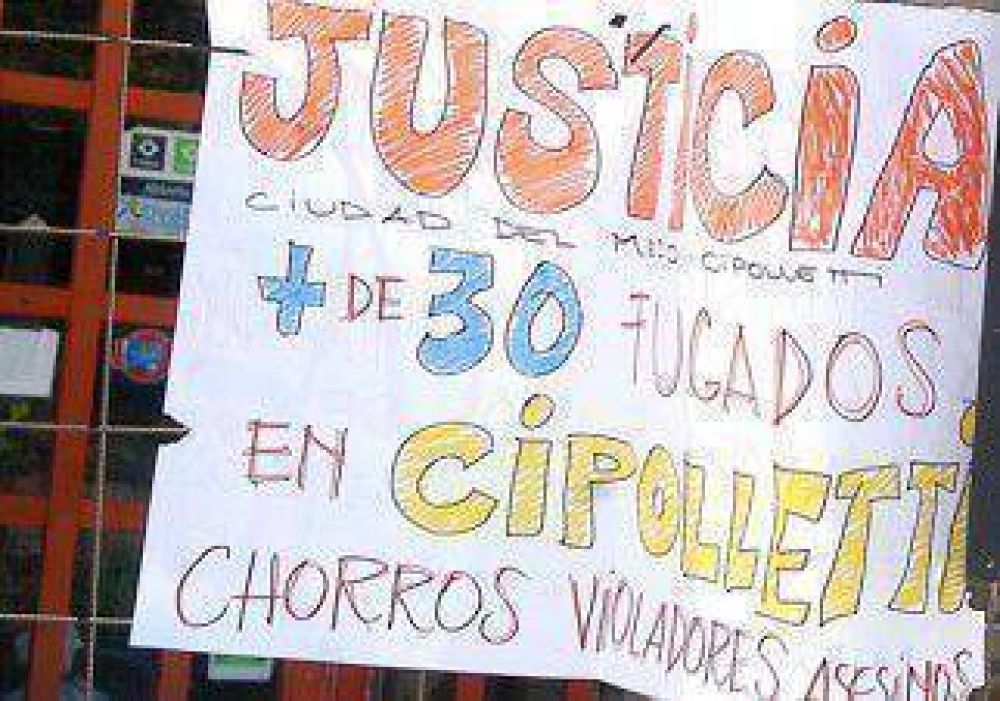 JUSTICIA
CIUDAD DEL CIPOLLETTI
+ DE 30 FUGADOS
EN CIPOLLETTI
CHORROS VIOLADORES ASESINOS